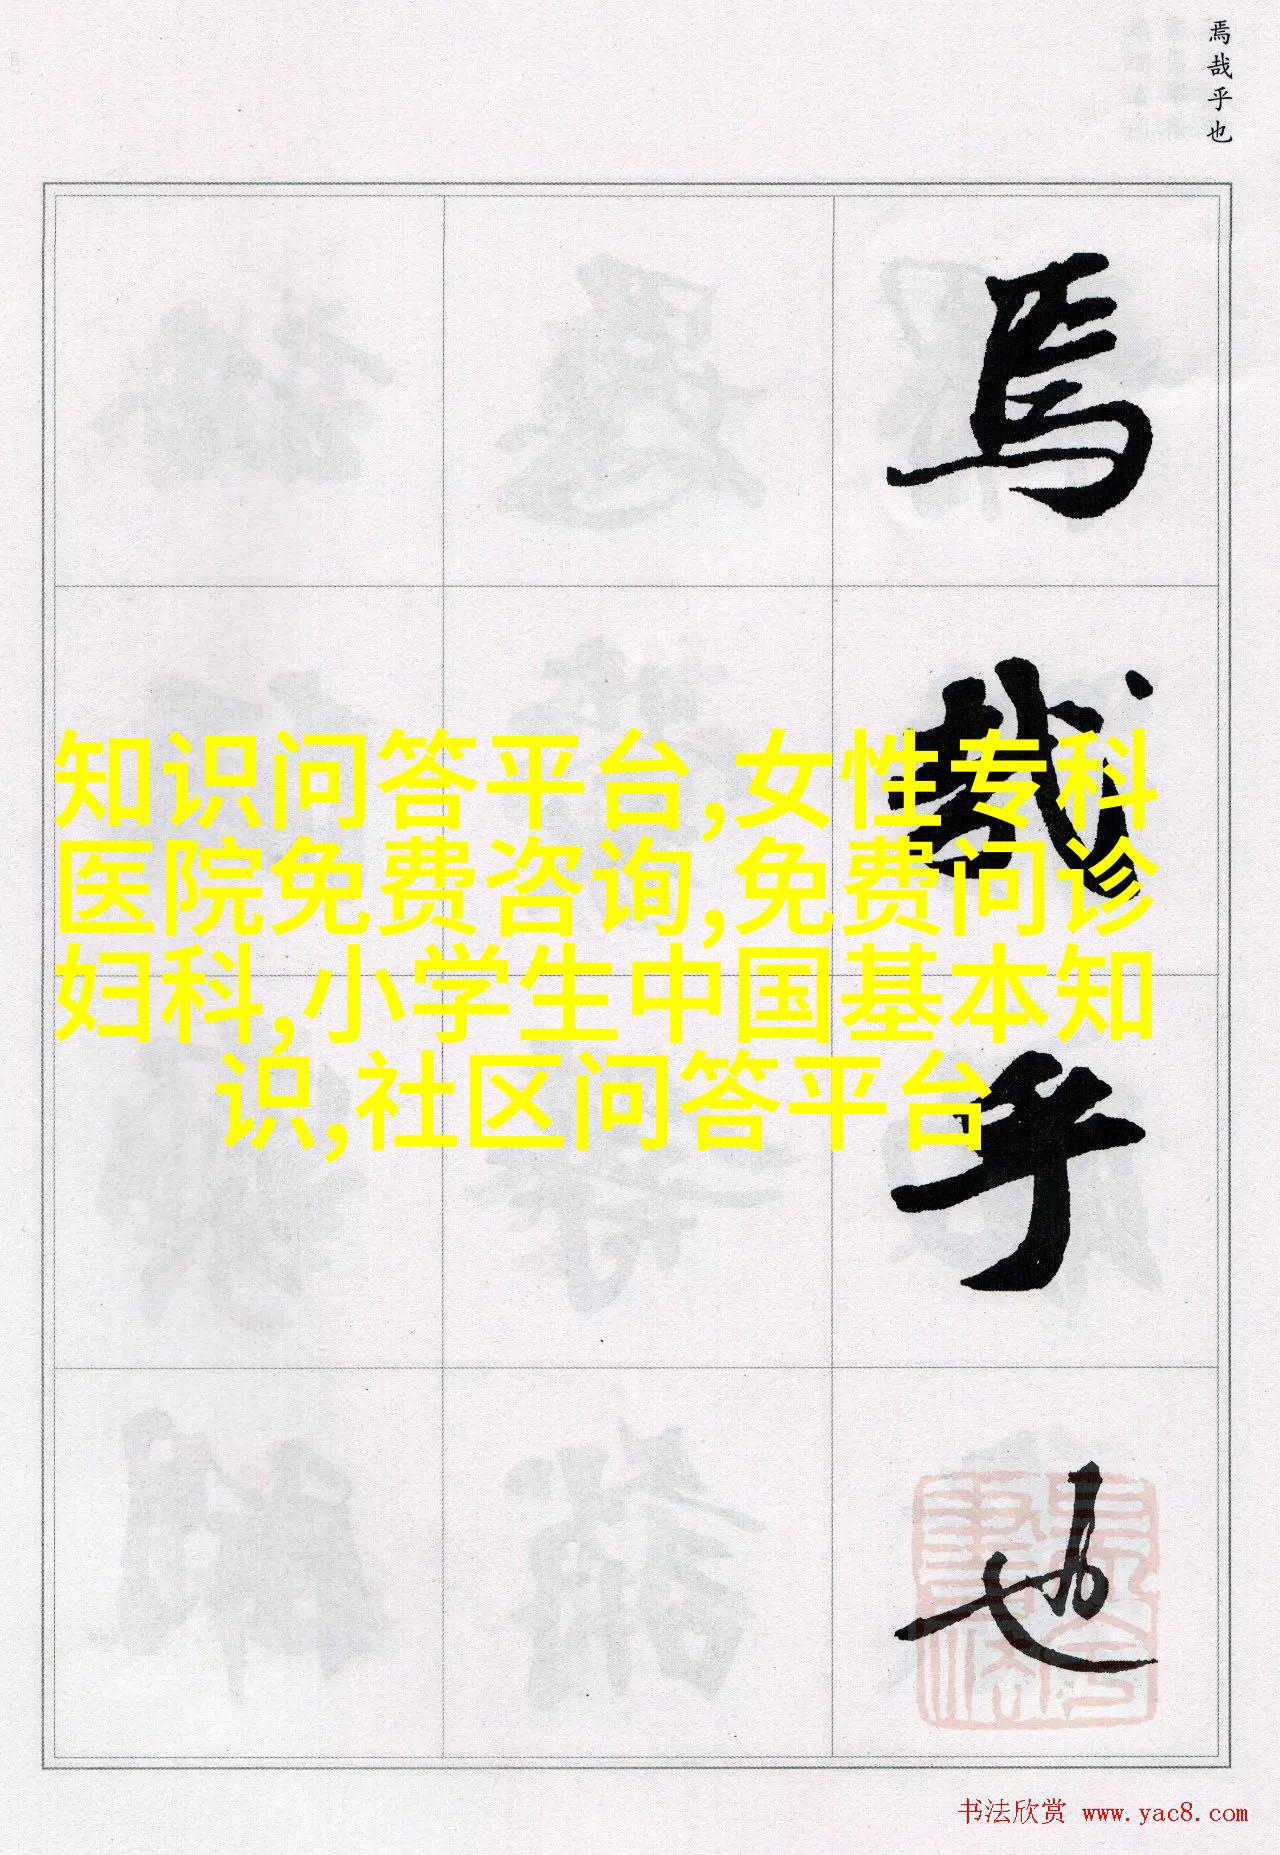 焉哉乎也
焉
哉
乎
也
知识问答平台,女性专科
医院免费咨询,免费问诊
妇科,小学生中国基本知
识,社区问答平台
书法欣赏 www.yac8.com